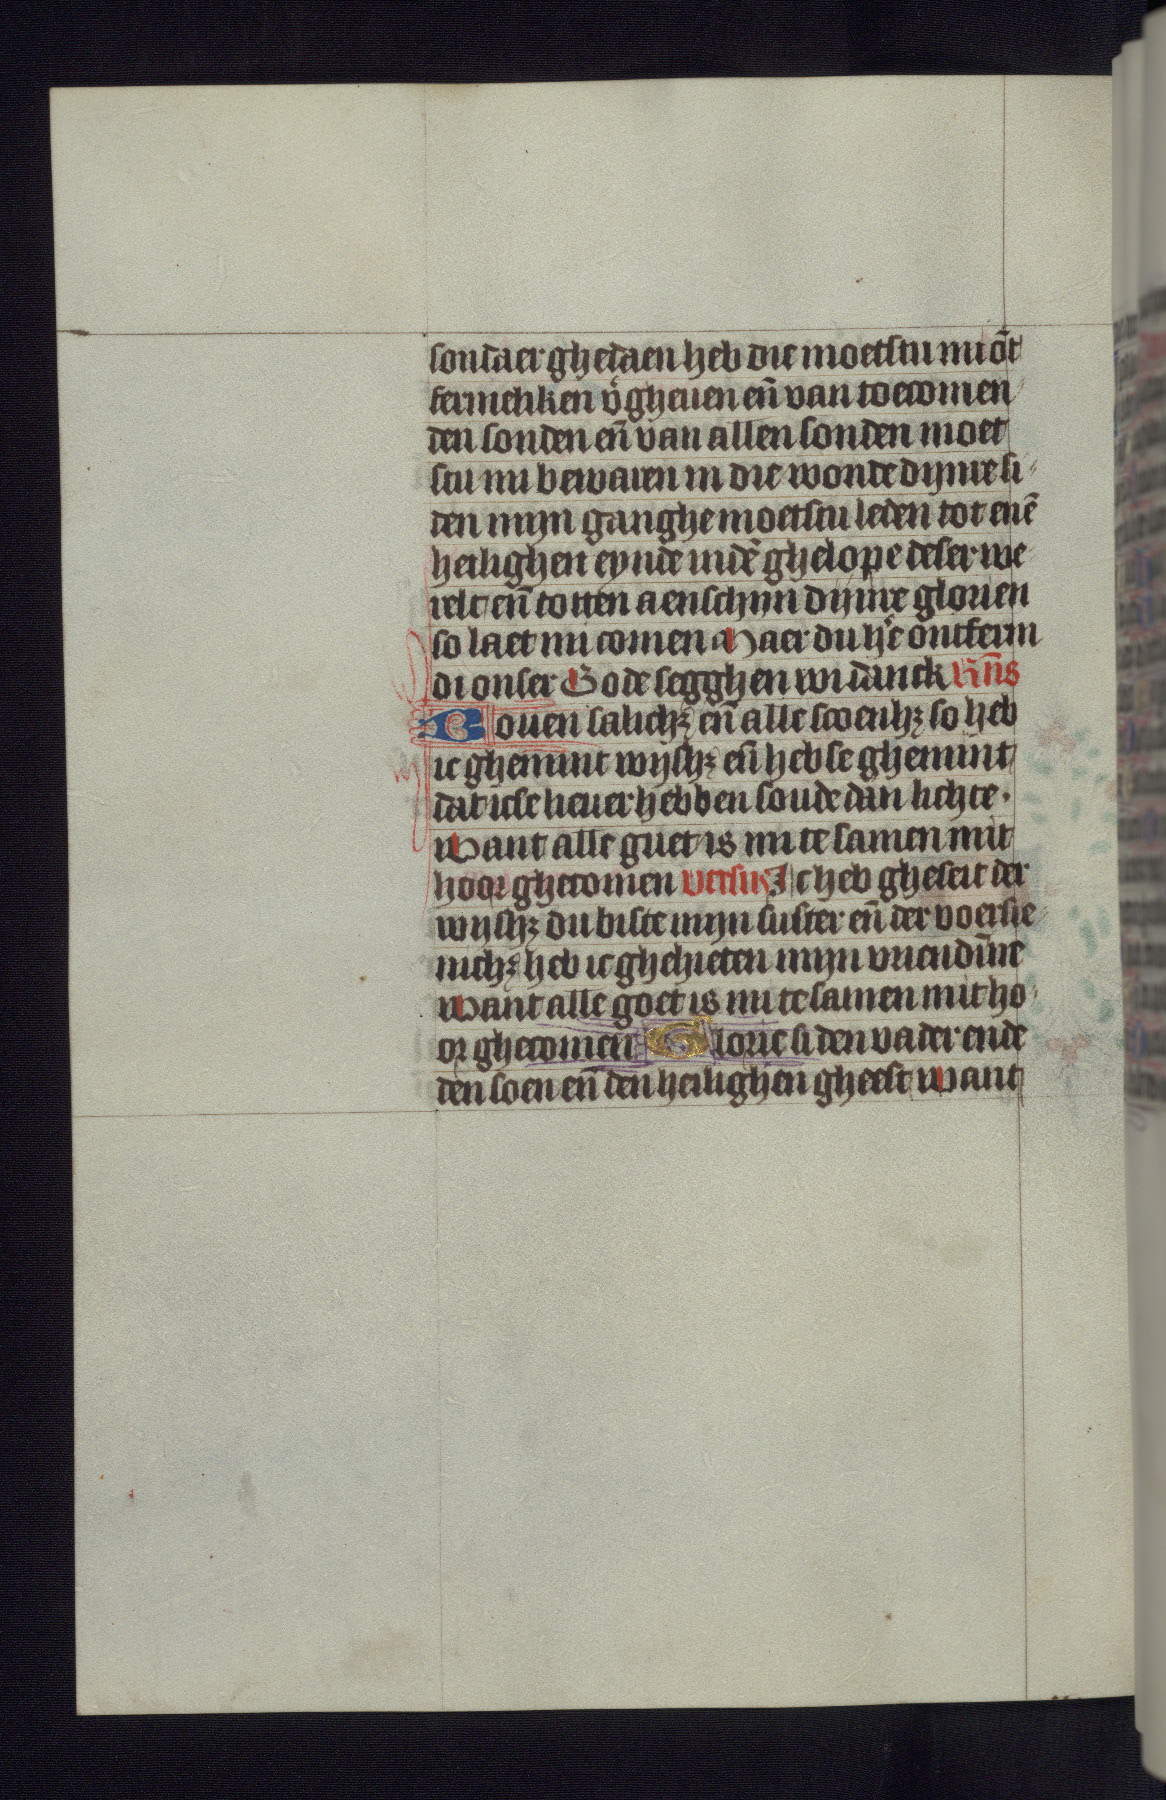 sondaer ghedaen heb die moetstu mi ōt
fermeliken v̓gheuen en̄ van toecomen
den sonden en̄ van allen sonden moet
stu mi bewaren in die wonde dijnre si
den mijn ganghe moetstu leden tot enē
heilighen eynde indē ghelope deser we
relt en̄ totten aenschijn dijnre glorien
so laet mi comen Maer du he͛ ontferm
di onser Gode segghen wi danck Rn̄s
Bouen salichꝫ en̄ alle scoenhꝫ so heb
ic ghemint wijshꝫ en̄ heb se ghemint
dat icse lieuer hebben soude dan lichte·
Want alle guet is mi te samen mit
hoor ghecomen versus Ic heb gheseit der
wijshꝫ du biste mijn suster en̄ der voersie
nichꝫ heb ic ghehieten mijn vriendīne
Want alle goet is mi te samen mit ho
or ghecomen Glorie si den vader ende
den soen en̄ den heilighen gheest Want